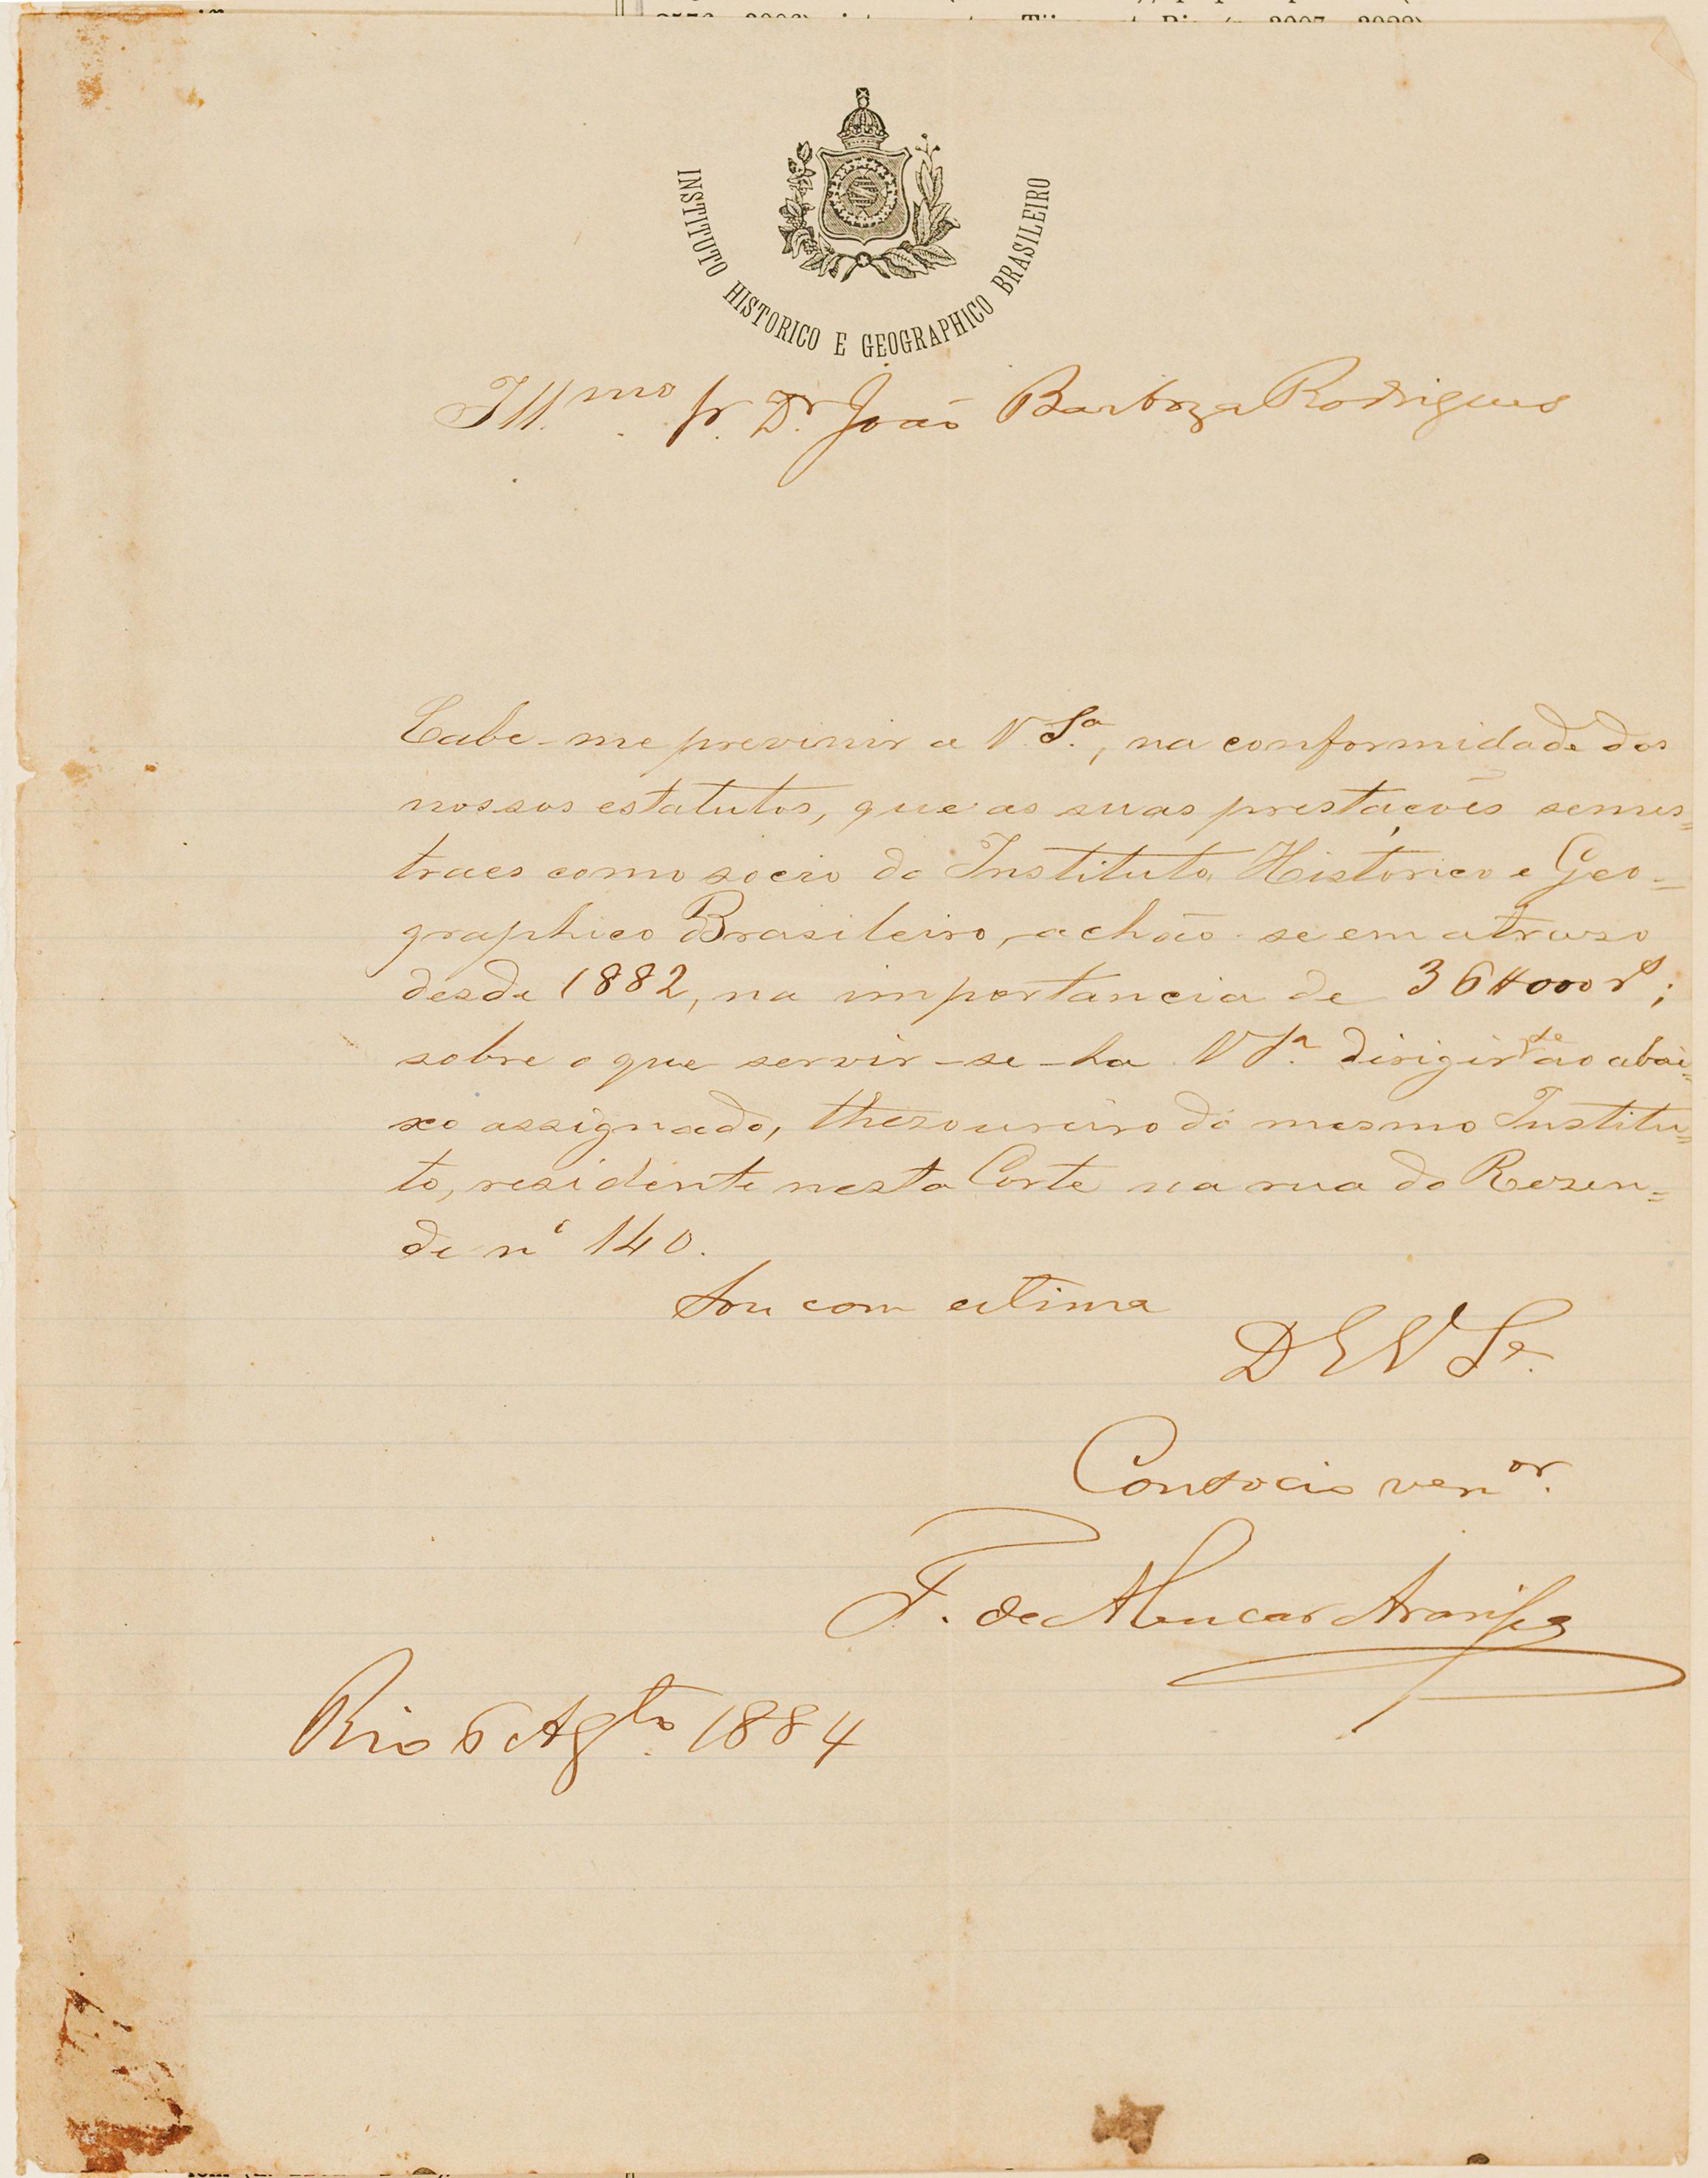 INSTITUTO HISTORICO E GEOGRAPHICO BRASILEIRO
Ill.mo Sr. Dr. João Barboza Rodrigues
Cabe-me previnir a V. S.a, na conformidade dos
nossos estatutos, que as suas prestações semes=
traes como socio do Instituto Historico e Geo=
graphico Brasileiro, achão-se em atrazo
desde 1882, na importancia de 36$000 rs;
sobre o que servir-se-ha V S.a dirigir se ao abai=
xo assignado, thezoureiro do mesmo Institu=
to, residente nesta Corte na rua do Rezen=
de nº 140.
Sou com estima
D E V S.a
Consocio ven.or
F. de Alencar Araripe
Rio 6 Ag.to 1884